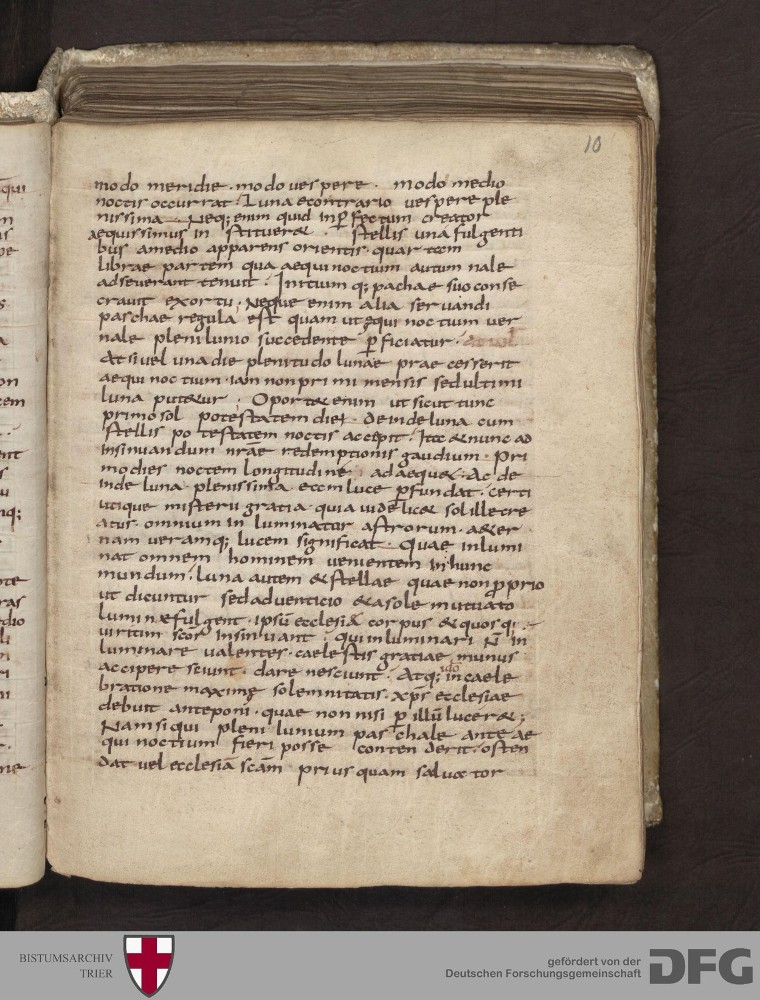 10
modo meridie · modo vespere · modo medio
noctis occurrat · Luna econtrario vespere ple
nissima · Neq; enim quid inp̱fectum creator
aequissimus in stituer& · stellis una fulgenti
bus amedio apparens orientis · quartam
librae partem qua aequinoctium autum nale
adseverant tenuit · Initium q; paschae suo conse
cravit exortu · Neque enim alia servandi
paschae regula est quam ut ęqui noctium ver
nale plenilunio succedente p̱ficiatur ·
At si vel una die plenitudo lunae prae cesserit
aequi noctium · iam non primi mensis sed ultimi
luna put&ur · Oport& enim ut sicut tunc
primo sol potestatem diei · deinde luna cum
stellis po testatem noctis accepit · Ita & nunc ad
insinuan dum nrae redemptionis gaudium · Pri
mo dies noctem longitudine adaequ& · Ac de
inde luna plenissima eam luce p̱fundat · certi
utique misterii gratia · quia videlic& sol ille cre
atus · omnium in luminatur astrorum · a&er
nam veramq; lucem significat · Quae inlumi
nat omnem hominem venientem in hunc
mundum · luna autem & stellae quae non proprio
ut dicuntur sed adventicio & a sole mutuato
lumin& fulgent · ipsū ecclesiae corpus & quosqu
viritim scos insinuant · qui inluminari N̄ in
luminare valentes · caelestis gratiae munus
accipere sciunt · dare nesciunt · Atq; ido in caele
bratione maxime solemnitatis · xp̄s ecclesiae
debuit anteponi · quae non nisi p̱ illū lucer& ;
Nam si qui pleni lunium pas chale ante ae
qui noctium fieri posse conten derit · osten
dat vel ecclesiā scām prius quam salvator
BISTUMSARCHIV
TRIER
gefördert von der
Deutschen Forschungsgemeinschaft
DFG